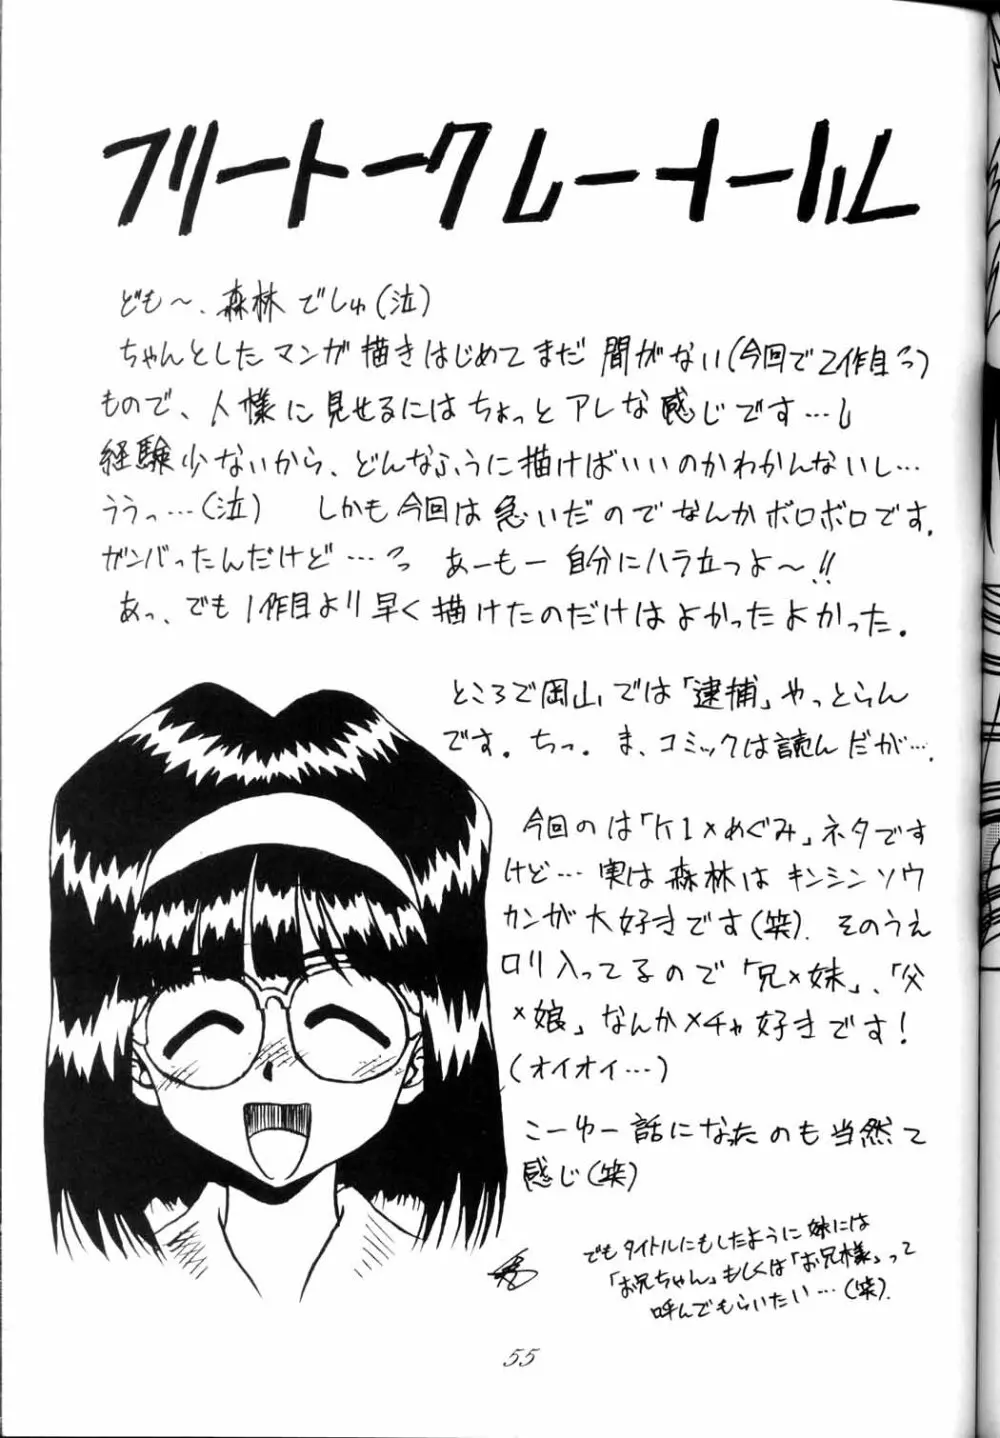 フリートークしーイールル
ども〜、森林でしゅ(泣)
ちゃんとしたマンガ描きはじめてまだ間がない(今回で2作目っ)
もので、人様に見せるにはちょっとアレな感じです…
経験少ないから、どんなふうに描けばいいのかわかんないし…
ううっ…(泣) しかも今回は急いだのでなんかボロボロです。
ガンバったんだけど…っ あーもー自分にハラ立つよ〜!!
あっ、でも1作目より早く描けたのだけはよかったよかった。
ところで岡山では「逮捕」やっとらん
です。ちっ。ま、コミックは読んだが…。
今回のは「K1×めぐみ」ネタです
けど… 実は森林はキンシンソウ
カンが大好きです(笑)。そのうえ
ロリ入ってるので「兄×妹」、「父
×娘」なんかメチャ好きです!
(オイオイ…)
こーゆー話になったのも当然て
感じ(笑)
でもタイトルにもしたように妹には
「お兄ちゃん」もしくは「お兄様」って
呼んでもらいたい…(笑)。
55